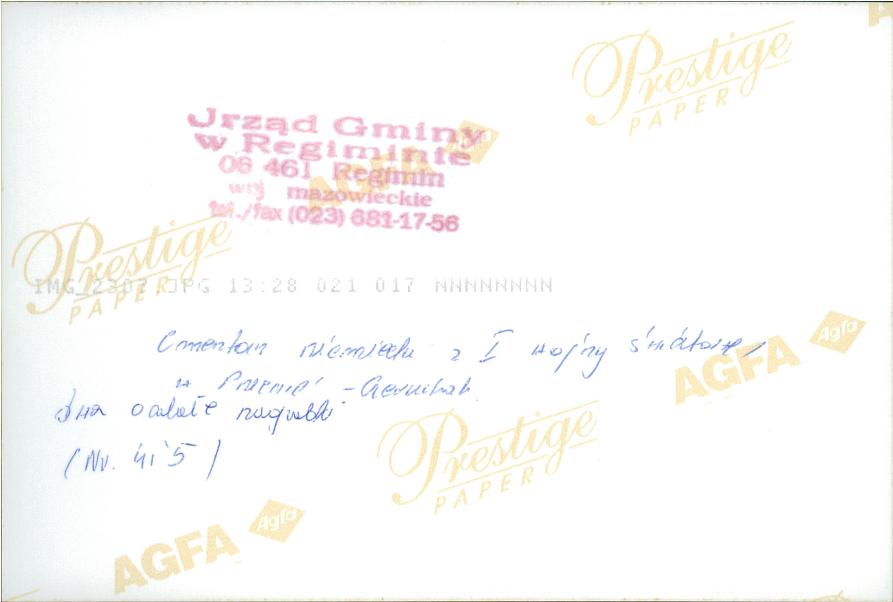 Prestige
PAPER
Jrząd Gminy
w Regiminie
06 461 Regimin
woj mazowieckie
tel./fax (023) 681-17-56
AGFA
Prestige
PAPER
IMG_2307.JPG 13:28 021 017 NNNNNNNN
Cmentarz niemiecki z I wojny światowej
w
dwa ocalałe nagrobki
(Nr. 4 i 5)
AGFA Agfa
Prestige
PAPER
AGFA Agfa